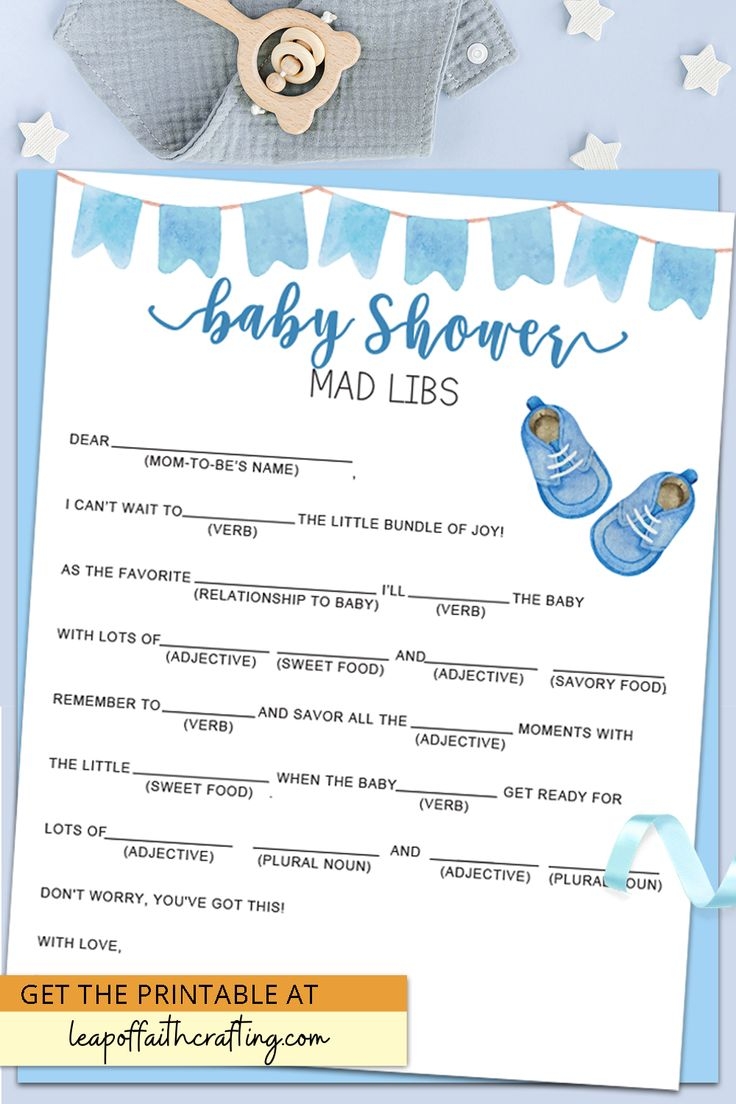 baby Shower
MAD LIBS
DEAR____________________________
(MOM-TO-BE'S NAME) ,
I CAN'T WAIT TO______________ THE LITTLE BUNDLE OF JOY!
(VERB)
AS THE FAVORITE ______________________ I'LL ____________ THE BABY
(RELATIONSHIP TO BABY) (VERB)
WITH LOTS OF_____________ _____________ AND_____________ _____________
(ADJECTIVE) (SWEET FOOD) (ADJECTIVE) (SAVORY FOOD)
REMEMBER TO ___________ AND SAVOR ALL THE ____________ MOMENTS WITH
(VERB) (ADJECTIVE)
THE LITTLE ________________ WHEN THE BABY____________ GET READY FOR
(SWEET FOOD) . (VERB)
LOTS OF_______________ _______________ AND _____________ _____________
(ADJECTIVE) (PLURAL NOUN) (ADJECTIVE) (PLURAL NOUN)
DON'T WORRY, YOU'VE GOT THIS!
WITH LOVE,
GET THE PRINTABLE AT
leapoffaithcrafting.com